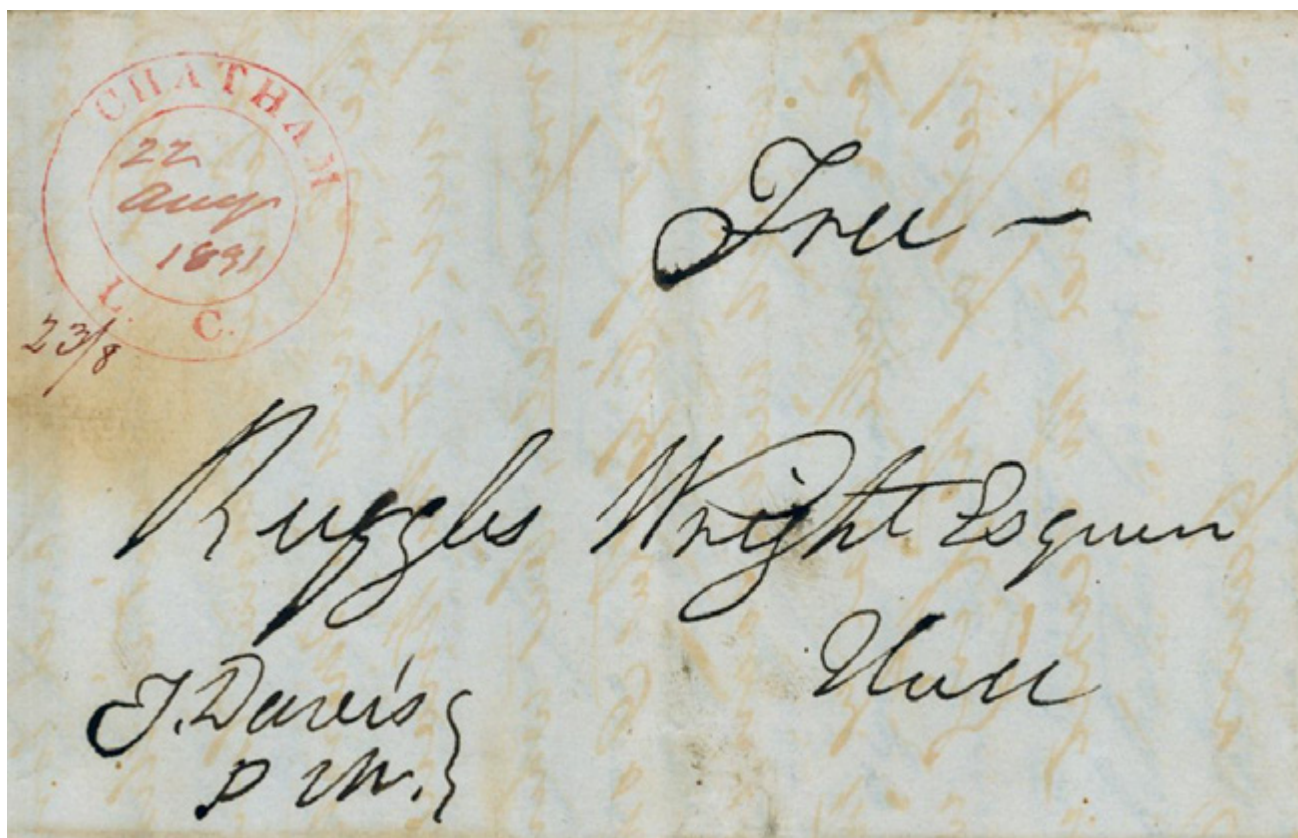 CHATHAM
22
Aug
1891
L. C.
23/8
Free -
Ruggles Wright Esquire
Hull
J. Davis
P M.